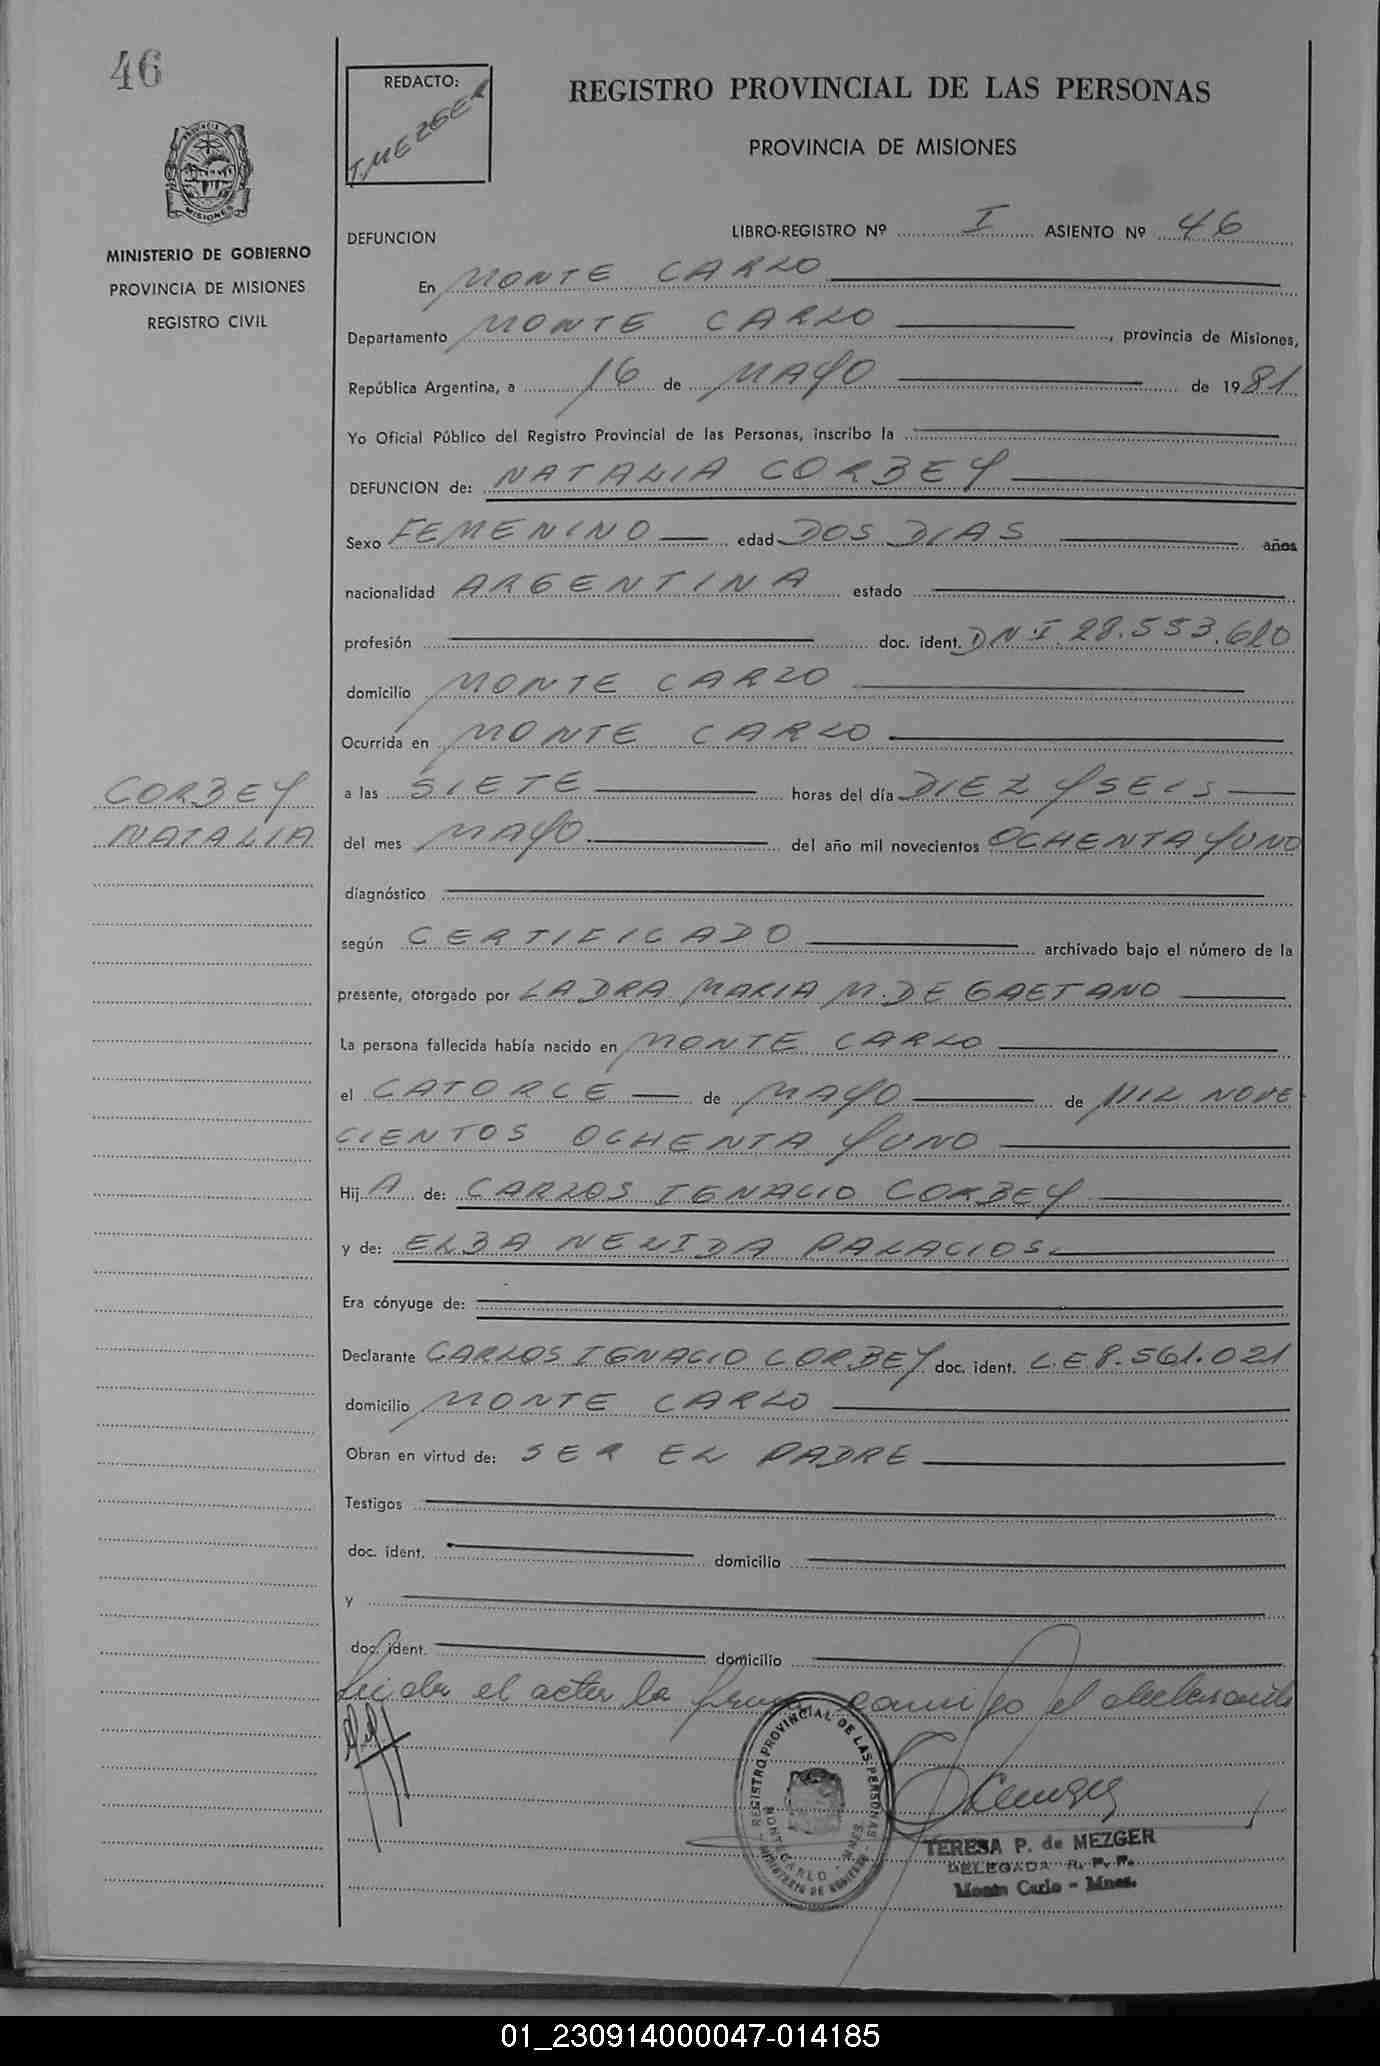 46
REDACTO:
T. MEZGER
REGISTRO PROVINCIAL DE LAS PERSONAS
PROVINCIA DE MISIONES
PROVINCIA DE
MISIONES
MINISTERIO DE GOBIERNO
PROVINCIA DE MISIONES
REGISTRO CIVIL
DEFUNCION
LIBRO-REGISTRO Nº I ASIENTO Nº 46
En MONTE CARLO
Departamento MONTE CARLO, provincia de Misiones,
República Argentina, a 16 de MAYO de 1981
Yo Oficial Público del Registro Provincial de las Personas, inscribo la
DEFUNCION de: NATALIA CORBEY
Sexo FEMENINO edad DOS DIAS años
nacionalidad ARGENTINA estado
profesión doc. ident. DN.I 28.553.620
domicilio MONTE CARLO
Ocurrida en MONTE CARLO
CORBEY
NATALIA
a las SIETE horas del día DIEZ Y SEIS
del mes MAYO del año mil novecientos OCHENTA Y UNO
diagnóstico
según CERTIFICADO archivado bajo el número de la
presente, otorgado por LA DRA MARIA M. DE GAETANO
La persona fallecida había nacido en MONTE CARLO
el CATORCE de MAYO de MIL NOVE
CIENTOS OCHENTA Y UNO
Hij A de: CARLOS IGNACIO CORBEY
y de: ELBA NELIDA PALACIOS.
Era cónyuge de:
Declarante CARLOS IGNACIO CORBEY doc. ident. L.E 8.561.021
domicilio MONTE CARLO
Obran en virtud de: SER EL PADRE
Testigos
doc. ident. domicilio
y
doc. ident. domicilio
Leida el acta la firma conmigo el declarante
REGISTRO PROVINCIAL DE LAS PERSONAS
MONTECARLO - MNES.
MINISTERIO DE GOBIERNO
TERESA P. de MEZGER
DELEGADA R. P. P.
Monte Carlo - Mnes.
01_230914000047-014185